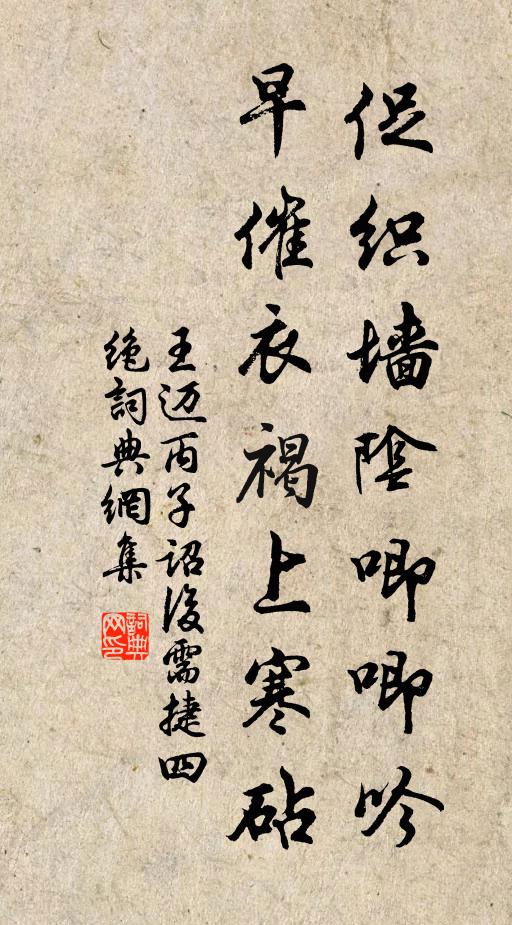 促织墙陰唧唧吟
早催衣褐上寒砧
王迈丙子诏後需捷四
绝詞典網集
詞典
网印